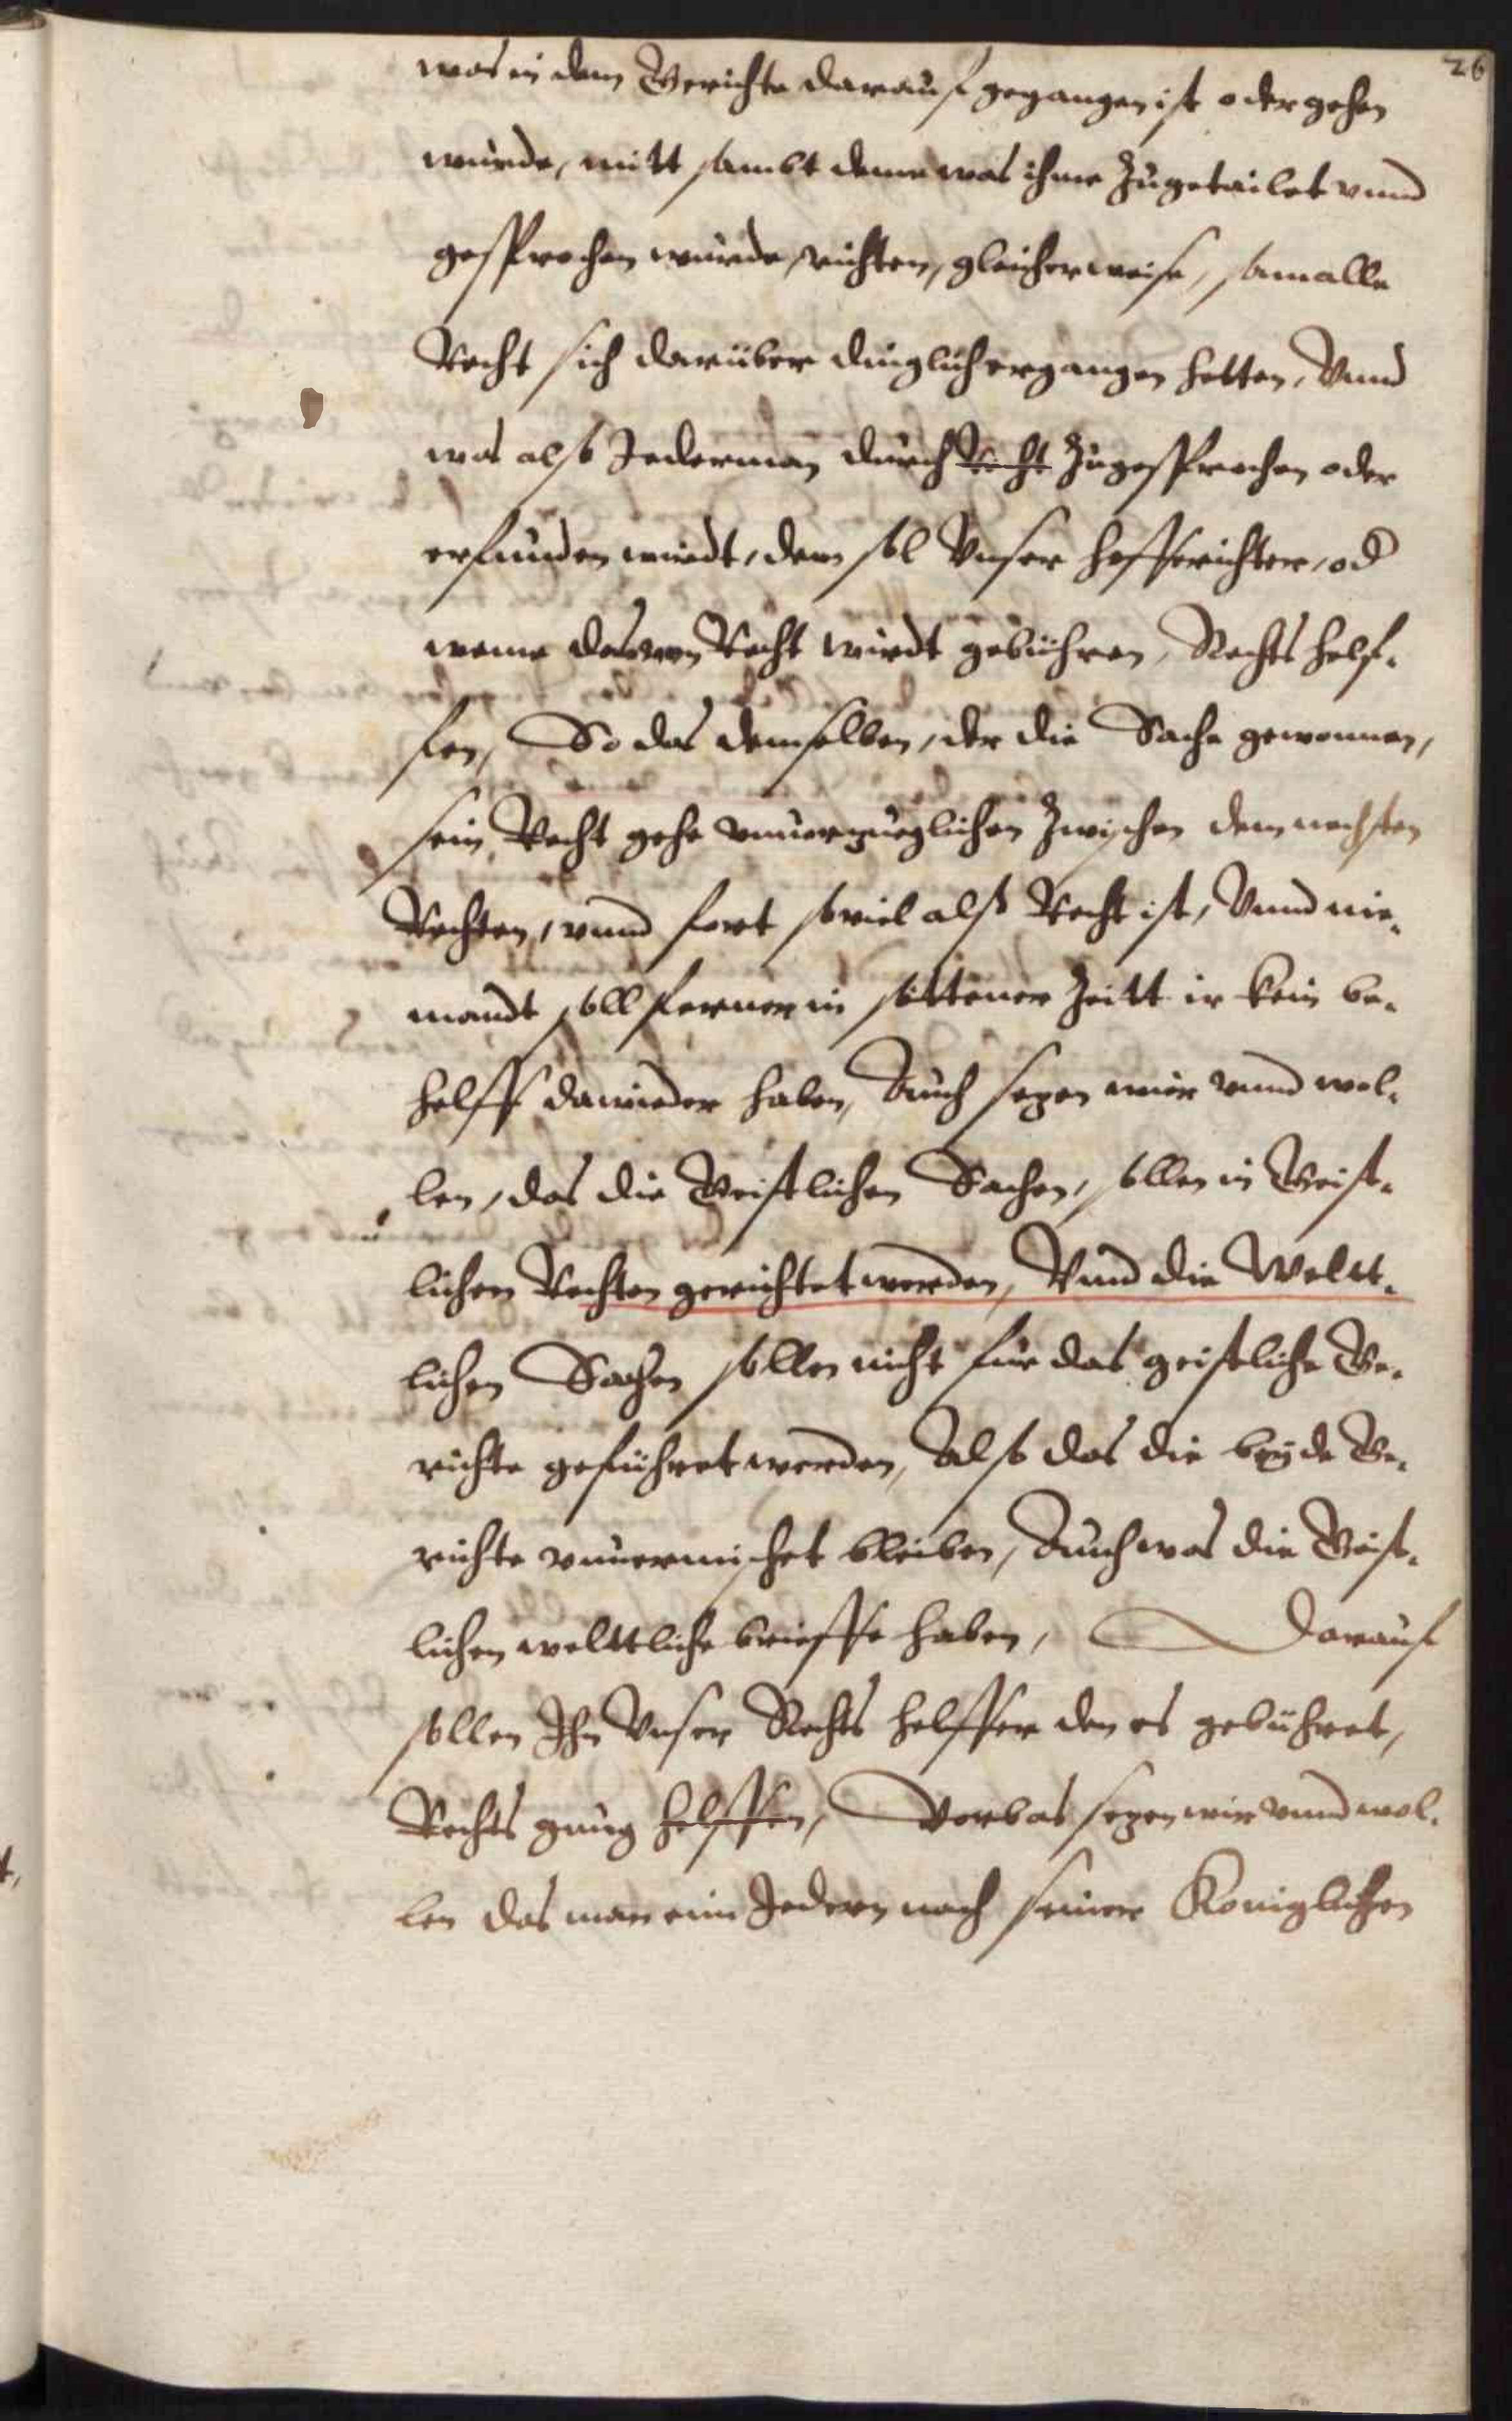 26
was in dem Gerichte darauf gegangen ist oder gehen
wurde, mitt sambt deme was ihme Zugetailet vnnd
gesprochen wurde, richten, gleicherweise, sam alle
Recht sich darüber dinglich ergangen hetten, Vnnd
was also Jederman durch Recht Zugesprochen oder
erfunden wirdt, dem sol Vnser Hofferichter, od
weme das von Recht wirdt gebühren, Rechts helf-
fen, So das demselben, der die Sache gewonnen,
sein Recht gehe vnuerzueglichen Zwischen dem nechsten
Rechten, vnnd fort soviel also Recht ist, Vnnd nie-
mandt soll ferner in Zeitt ir kein be-
helff dawieder haben, Auch sezen wier vnnd wol-
len, das die Geistlichen Sachen, sollen in Geist-
lichen Rechten gerichtet werden, Vnnd die Weltt-
lichen Sachen sollen nicht für das geistliche Ge-
richte geführet werden, Also das die beyde Ge-
richte vnuermischet bleiben, Auch was die Geist-
lichen welttliche brieffe haben, Darauf
sollen Ihn Vnser Rechts helffer den es gebühret,
Rechts gnug helffen, Vorbas sezen wir vnnd wol-
len das man eim Jedern nach seiner Koniglichen